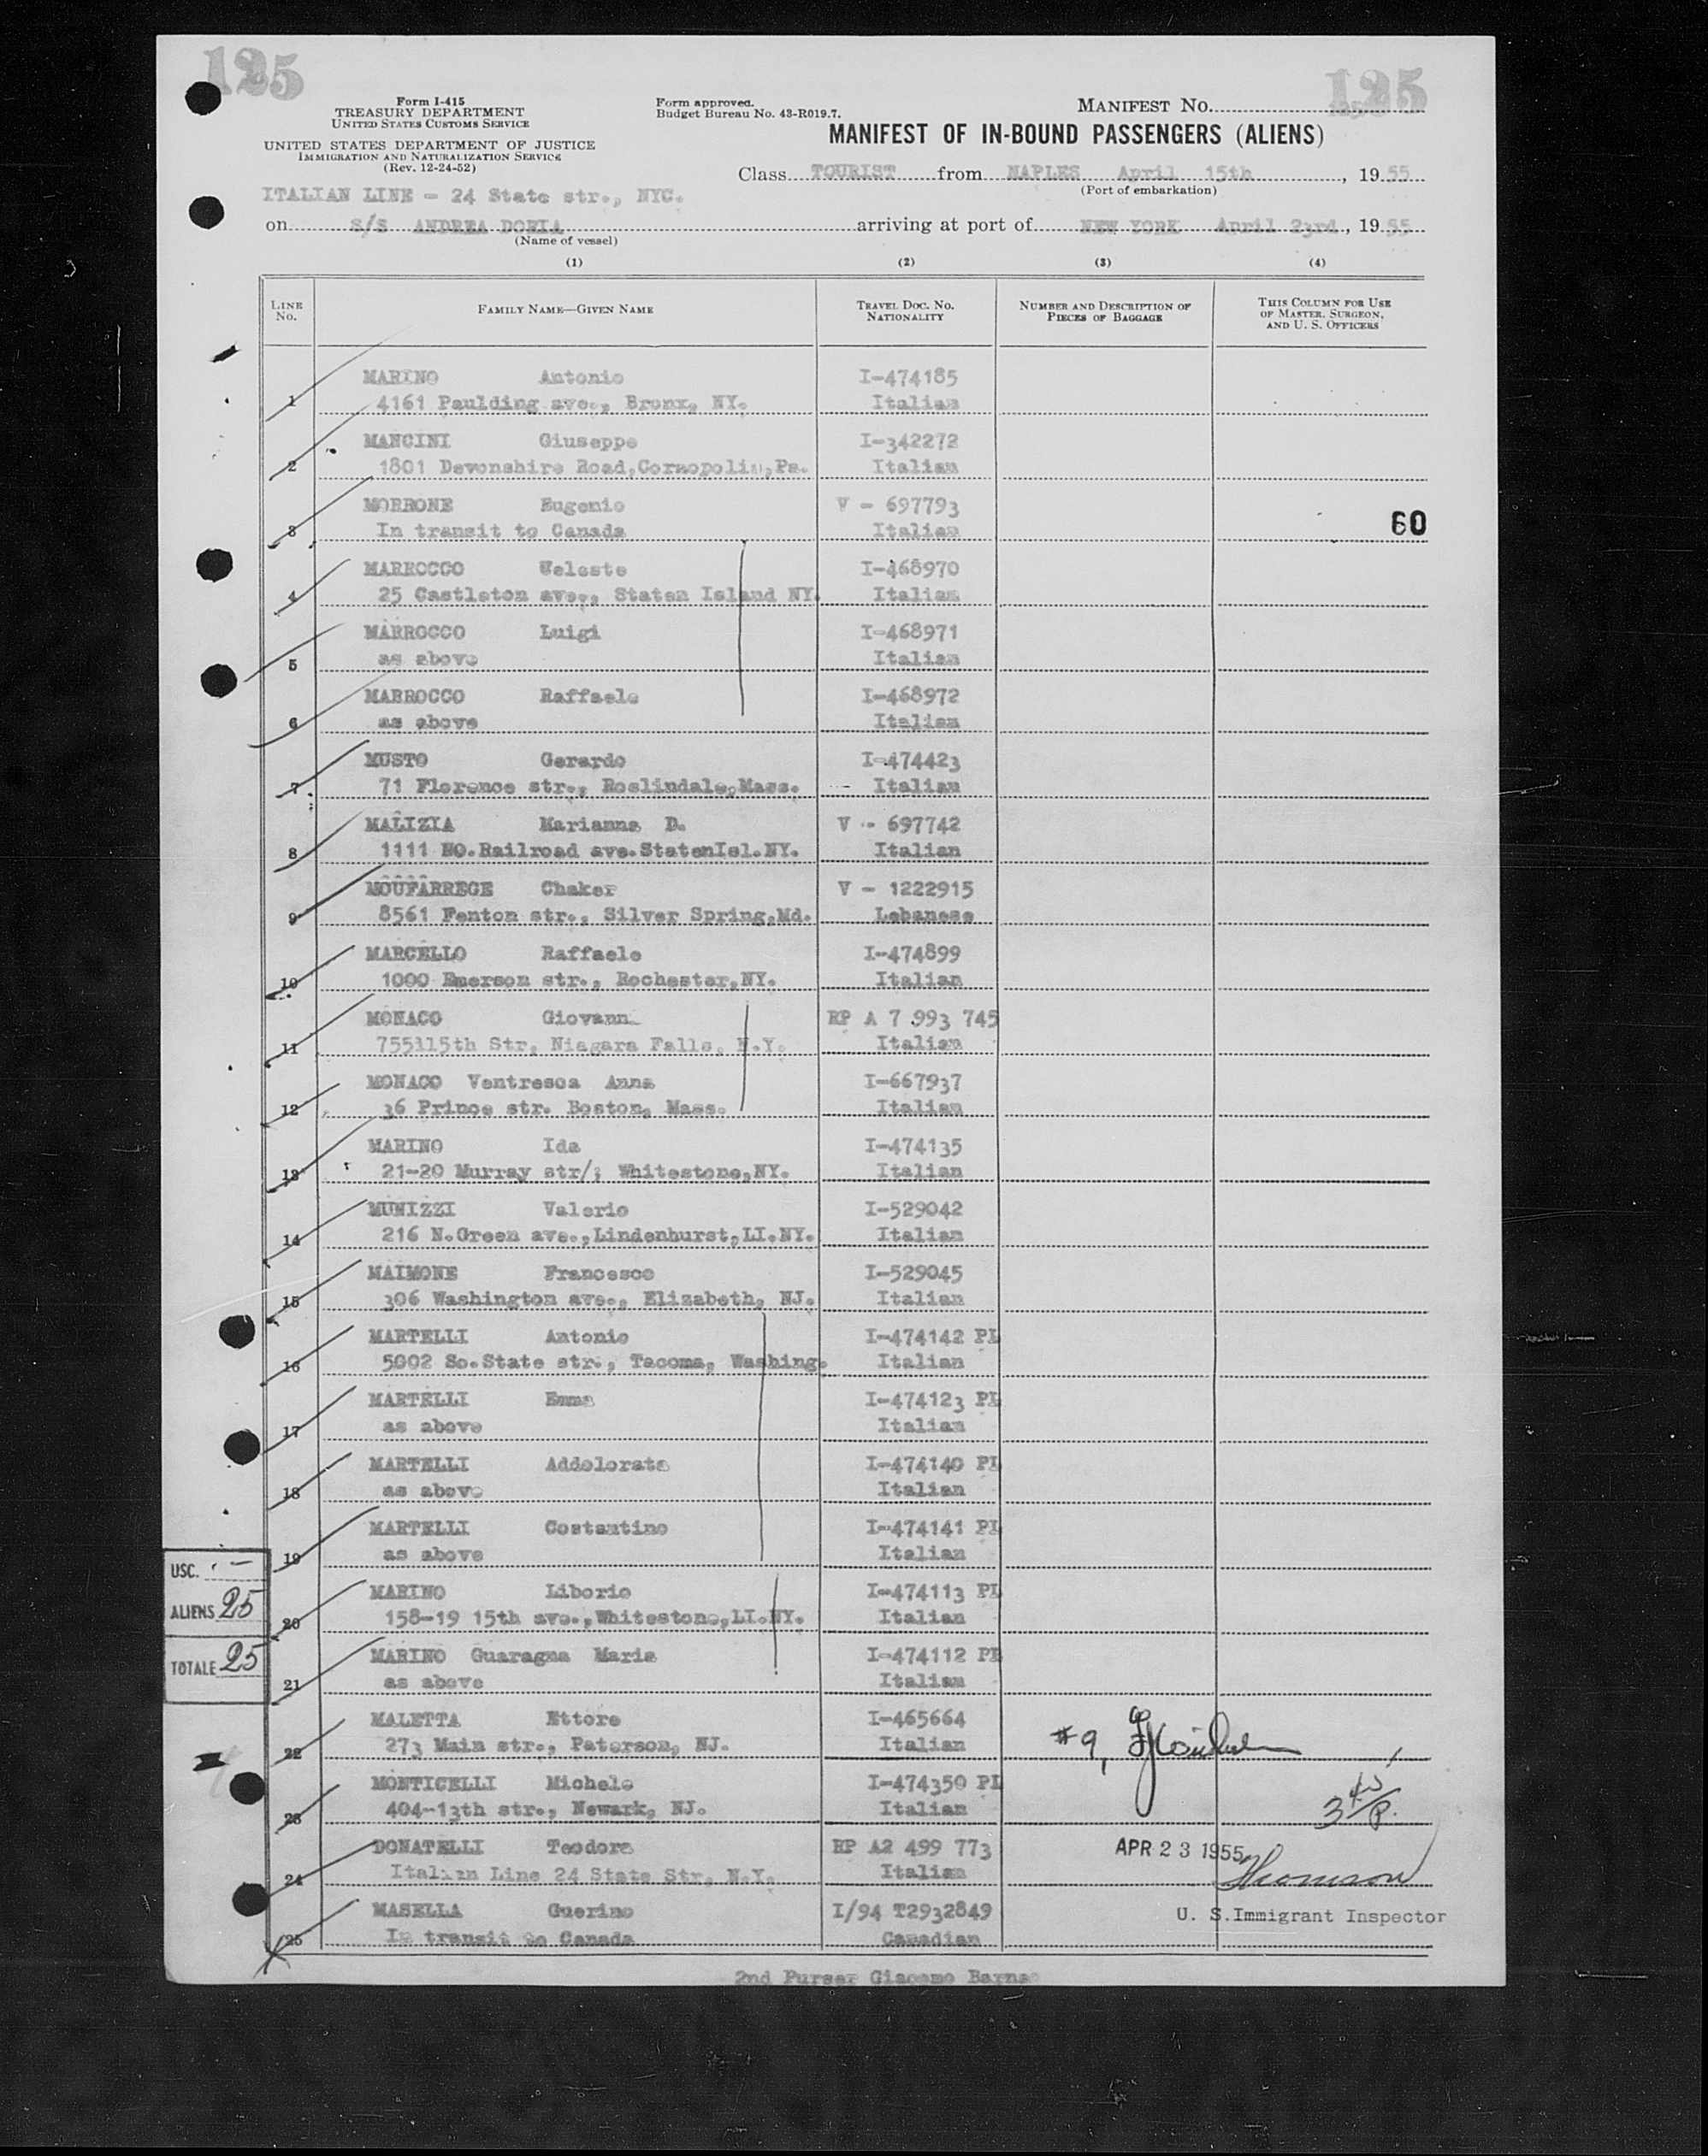 125
125
Form I-415
TREASURY DEPARTMENT
UNITED STATES CUSTOMS SERVICE
UNITED STATES DEPARTMENT OF JUSTICE
IMMIGRATION AND NATURALIZATION SERVICE
(Rev. 12-24-52)
Form approved.
Budget Bureau No. 43-R019.7.
MANIFEST NO.
MANIFEST OF IN-BOUND PASSENGERS (ALIENS)
Class TOURIST from NAPLES April 15th, 1955
(Port of embarkation)
ITALIAN LINE - 24 State str., NYC.
on S/S ANDREA DORIA arriving at port of NEW YORK April 23rd, 1955
(Name of vessel)
(1) (2) (3) (4)
LINE No. FAMILY NAME—GIVEN NAME TRAVEL DOC. NO. NATIONALITY NUMBER AND DESCRIPTION OF PIECES OF BAGGAGE THIS COLUMN FOR USE OF MASTER, SURGEON, AND U. S. OFFICERS
MARINO Antonio I-474185
1 4161 Paulding ave., Bronx, NY. Italian
MANCINI Giuseppe I-342272
2 1801 Devonshire Road,Cornopolis,Pa. Italian
MORRONE Eugenio V - 697793
3 In transit to Canada Italian 60
MARROCCO Weleste I-468970
4 25 Castleton ave., Staten Island NY. Italian
MARROCCO Luigi I-468971
5 as above Italian
MARROCCO Raffaele I-468972
6 as above Italian
MUSTO Gerardo I-474423
7 71 Florence str., Roslindale,Mass. Italian
MALIZIA Marianna D. V - 697742
8 1111 NO.Railroad ave.StatenIsl.NY. Italian
MOUFARREGE Chaker V - 1222915
9 8561 Fenton str., Silver Spring,Md. Lebanese
MARCELLO Raffaele I-474899
10 1000 Emerson str., Rochester,NY. Italian
MONACO Giovann RP A 7 993 745
11 755115th Str, Niagara Falls, N.Y. Italian
MONACO Ventresca Anna I-667937
12 36 Prince str. Boston, Mass. Italian
MARINO Ida I-474135
13 21-20 Murray str/; Whitestone,NY. Italian
MUNIZZI Valerio I-529042
14 216 N.Green ave.,Lindenhurst,LI.NY. Italian
MAIMONE Francesco I-529045
15 306 Washington ave., Elizabeth, NJ. Italian
MARTELLI Antonio I-474142 PL
16 5002 So.State str., Tacoma, Washing. Italian
MARTELLI Emma I-474123 PL
17 as above Italian
MARTELLI Addolorata I-474140 PL
18 as above Italian
MARTELLI Costantino I-474141 PL
19 as above Italian
USC. -
ALIENS 25
TOTALE 25
MARINO Liborio I-474113 PL
20 158-19 15th ave.,Whitestone,LI.NY. Italian
MARINO Guaragna Maria I-474112 PL
21 as above Italian
MALETTA Ettore I-465664
22 273 Main str., Paterson, NJ. Italian #9,
MONTICELLI Michele I-474350 PL
23 404-13th str., Newark, NJ. Italian
DONATELLI Teodora RP A2 499 773 APR 23 1955
24 Italian Line 24 State Str, N.Y. Italian Thomson
MASELLA Guerino I/94 T2932849 U. S.Immigrant Inspector
25 In transit to Canada Canadian
2nd Purser Giacomo